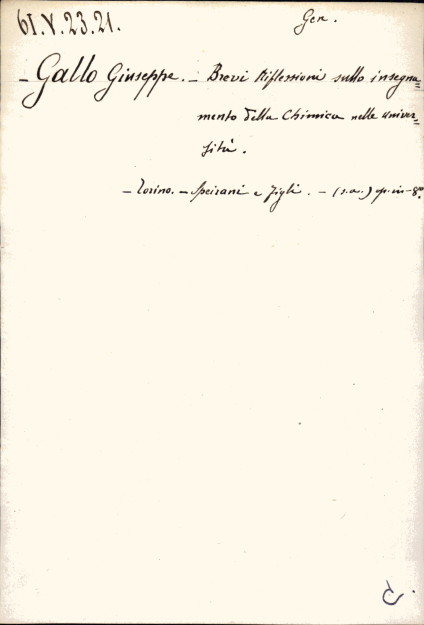 61.V.23.21.
Gen.
- Gallo Giuseppe. - Brevi Riflessioni sullo insegna=
mento della Chimica nelle univer=
sità.
- Torino. - Speirani e Figli. - (s.a.) op. in-8°.